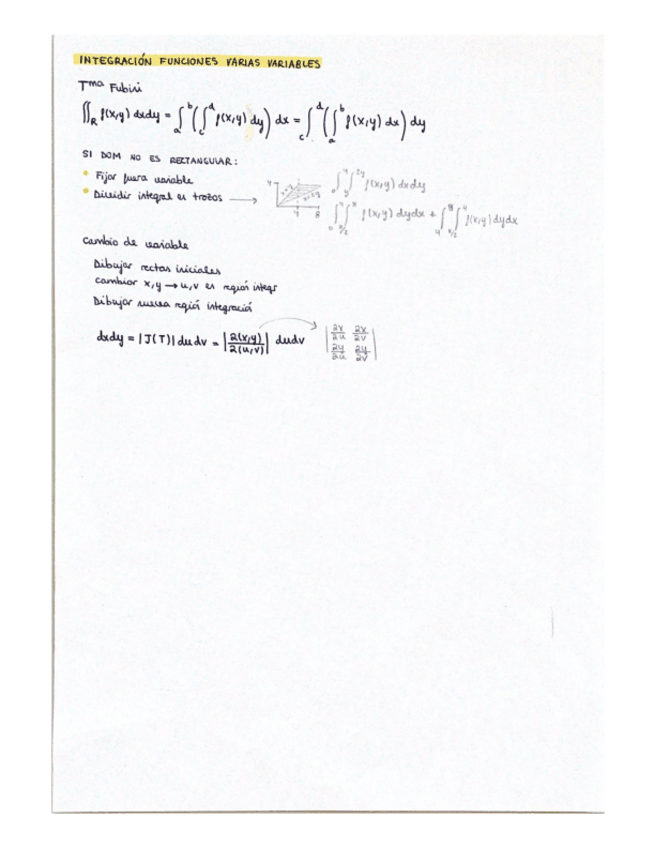 INTEGRACIÓN FUNCIONES VARIAS VARIABLES
Tma Fubini
∬_R f(x,y) dxdy = ∫_a^b (∫_c^d f(x,y) dy) dx = ∫_c^d (∫_a^b f(x,y) dx) dy
SI DOM NO ES RECTANGULAR:
• Fijar fuera variable
• Dividir integral en trozos →
4
4 8
f(x,y) dxdy
f(x,y) dydx + f(x,y) dydx
Cambio de variable
Dibujar rectas iniciales
cambiar x,y → u,v en región integr
Dibujar nueva región integración
dxdy = |J(T)| du dv = |∂(x,y)/∂(u,v)| dudv |∂x/∂u ∂x/∂v|
|∂y/∂u ∂y/∂v|